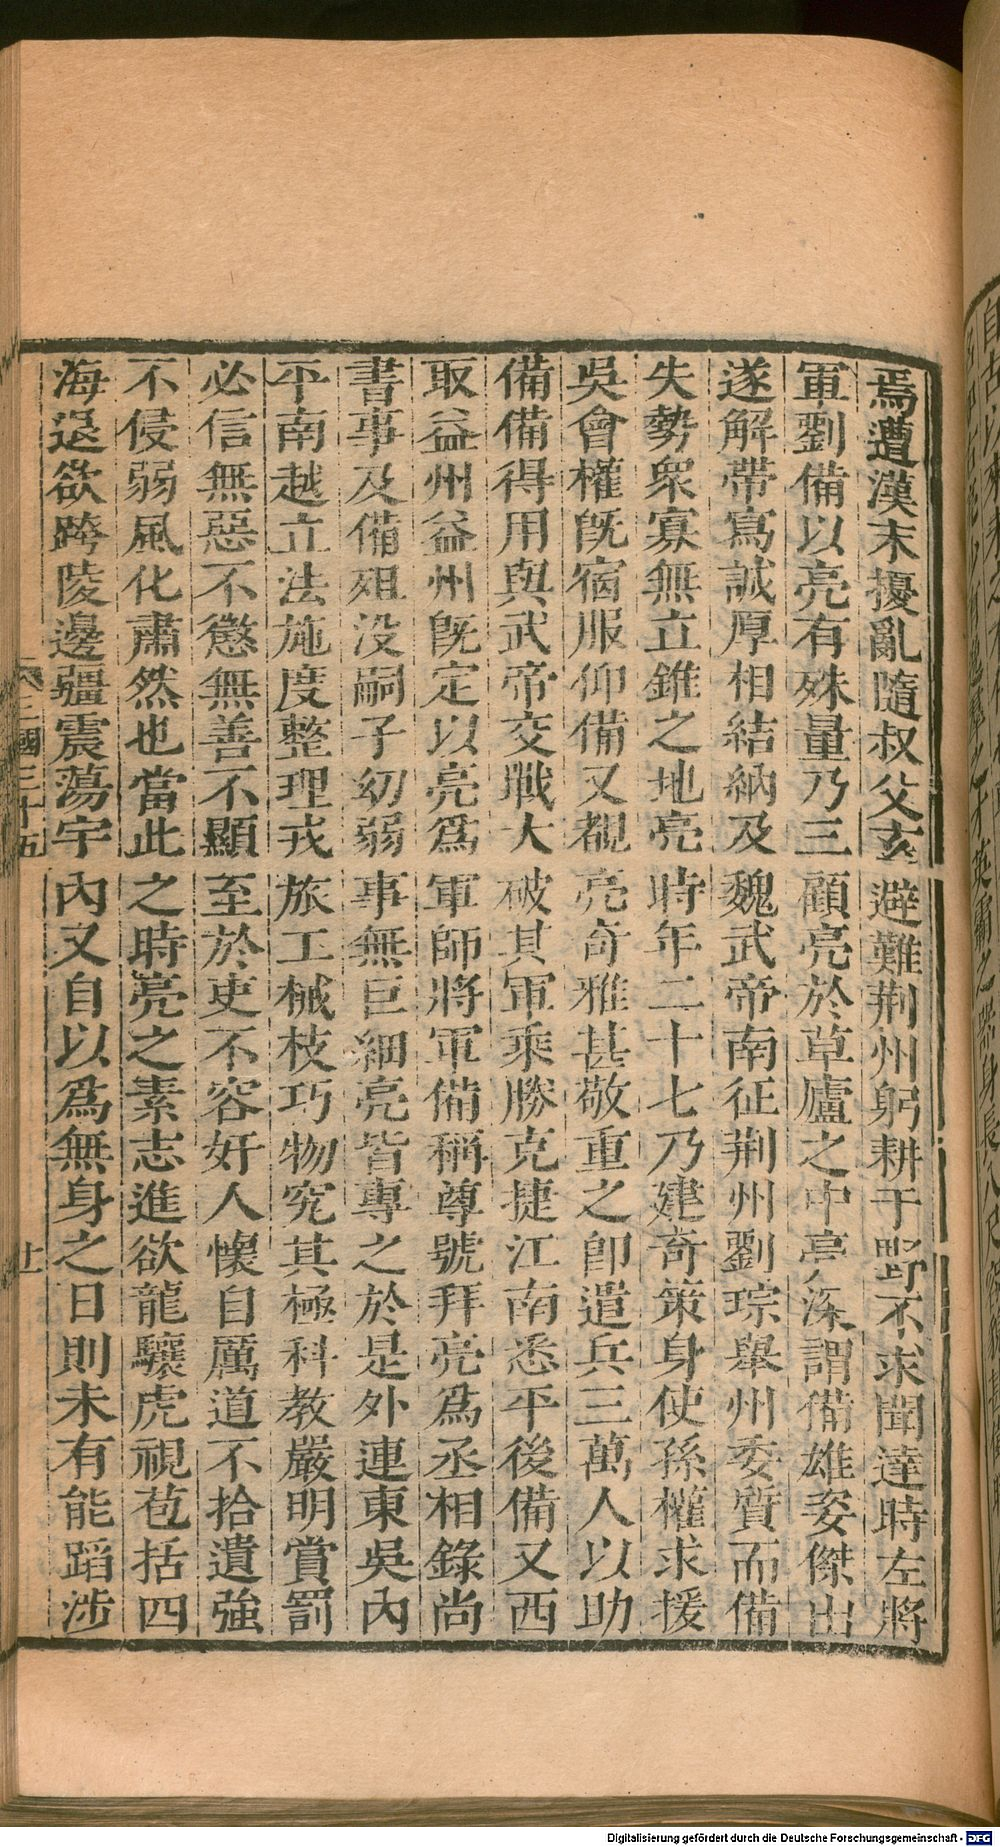 焉遭漢末擾亂隨叔父玄避難荆州躬耕于野不求聞達時左將
軍劉備以亮有殊量乃三顧亮於草廬之中亮深謂備雄姿傑出
遂解帶寫誠厚相結納及魏武帝南征荆州劉琮舉州委質而備
失勢衆寡無立錐之地亮時年二十七乃建奇策身使孫權求援
吳會權旣宿服仰備又覩亮奇雅甚敬重之卽遣兵三萬人以助
備備得用與武帝交戰大破其軍乘勝克捷江南悉平後備又西
取益州益州旣定以亮爲軍師將軍備稱尊號拜亮爲丞相錄尚
書事及備殂没嗣子幼弱事無巨細亮皆專之於是外連東吳內
平南越立法施度整理戎旅工械枝巧物究其極科教嚴明賞罰
必信無惡不懲無善不顯至於吏不容奸人懷自厲道不拾遺強
不侵弱風化肅然也當此之時亮之素志進欲龍驤虎視苞括四
海退欲跨陵邊疆震蕩宇內又自以爲無身之日則未有能蹈涉
三國三十五
Digitalisierung gefördert durch die Deutsche Forschungsgemeinschaft - DFG